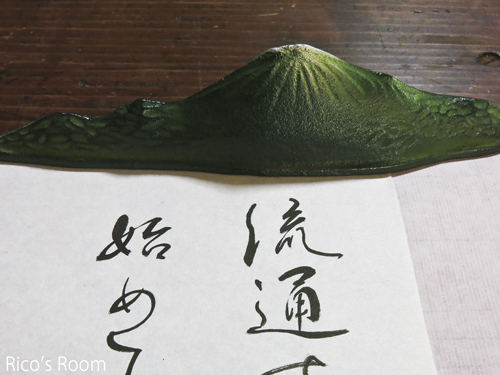 流通す
始めて
Rico's Room